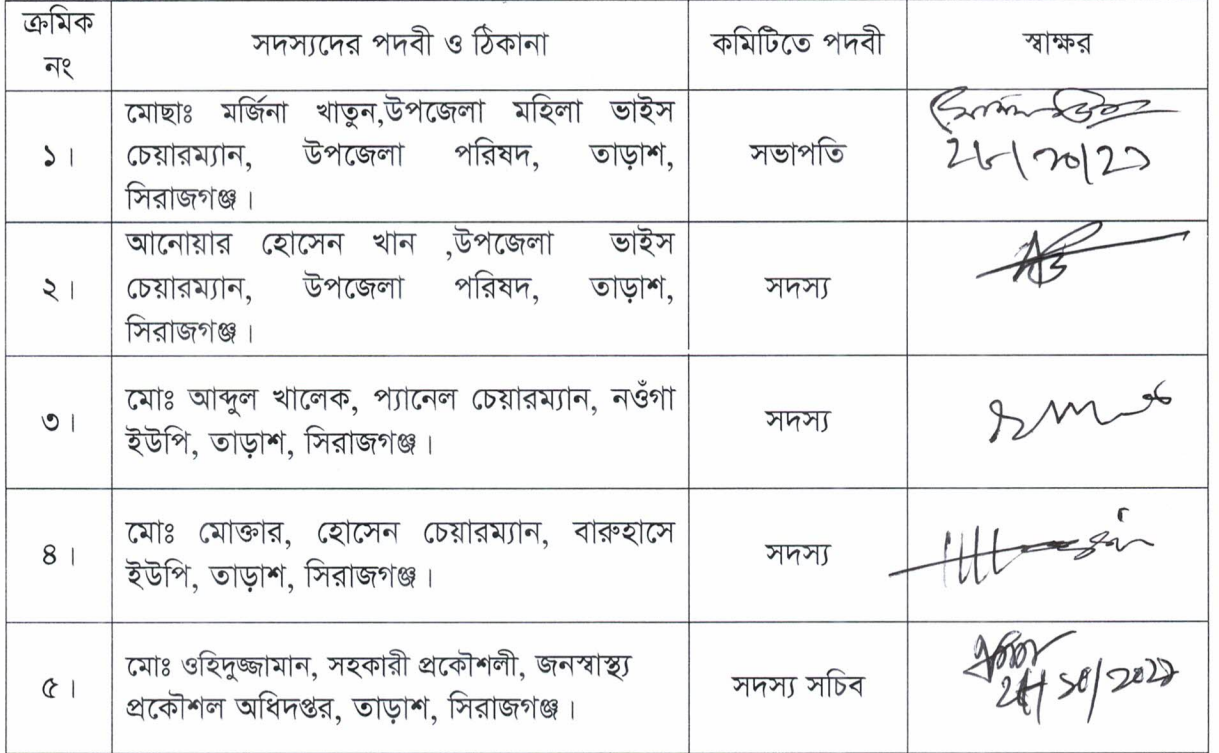 ক্রমিক নং সদস্যদের পদবী ও ঠিকানা কমিটিতে পদবী স্বাক্ষর
১। মোছাঃ মর্জিনা খাতুন,উপজেলা মহিলা ভাইস
চেয়ারম্যান, উপজেলা পরিষদ, তাড়াশ,
সিরাজগঞ্জ।
সভাপতি
২। আনোয়ার হোসেন খান ,উপজেলা ভাইস
চেয়ারম্যান, উপজেলা পরিষদ, তাড়াশ,
সিরাজগঞ্জ।
সদস্য
৩। মোঃ আব্দুল খালেক, প্যানেল চেয়ারম্যান, নওঁগা
ইউপি, তাড়াশ, সিরাজগঞ্জ।
সদস্য
৪। মোঃ মোক্তার, হোসেন চেয়ারম্যান, বারুহাসে
ইউপি, তাড়াশ, সিরাজগঞ্জ।
সদস্য
৫। মোঃ ওহিদুজ্জামান, সহকারী প্রকৌশলী, জনস্বাস্থ্য
প্রকৌশল অধিদপ্তর, তাড়াশ, সিরাজগঞ্জ।
সদস্য সচিব